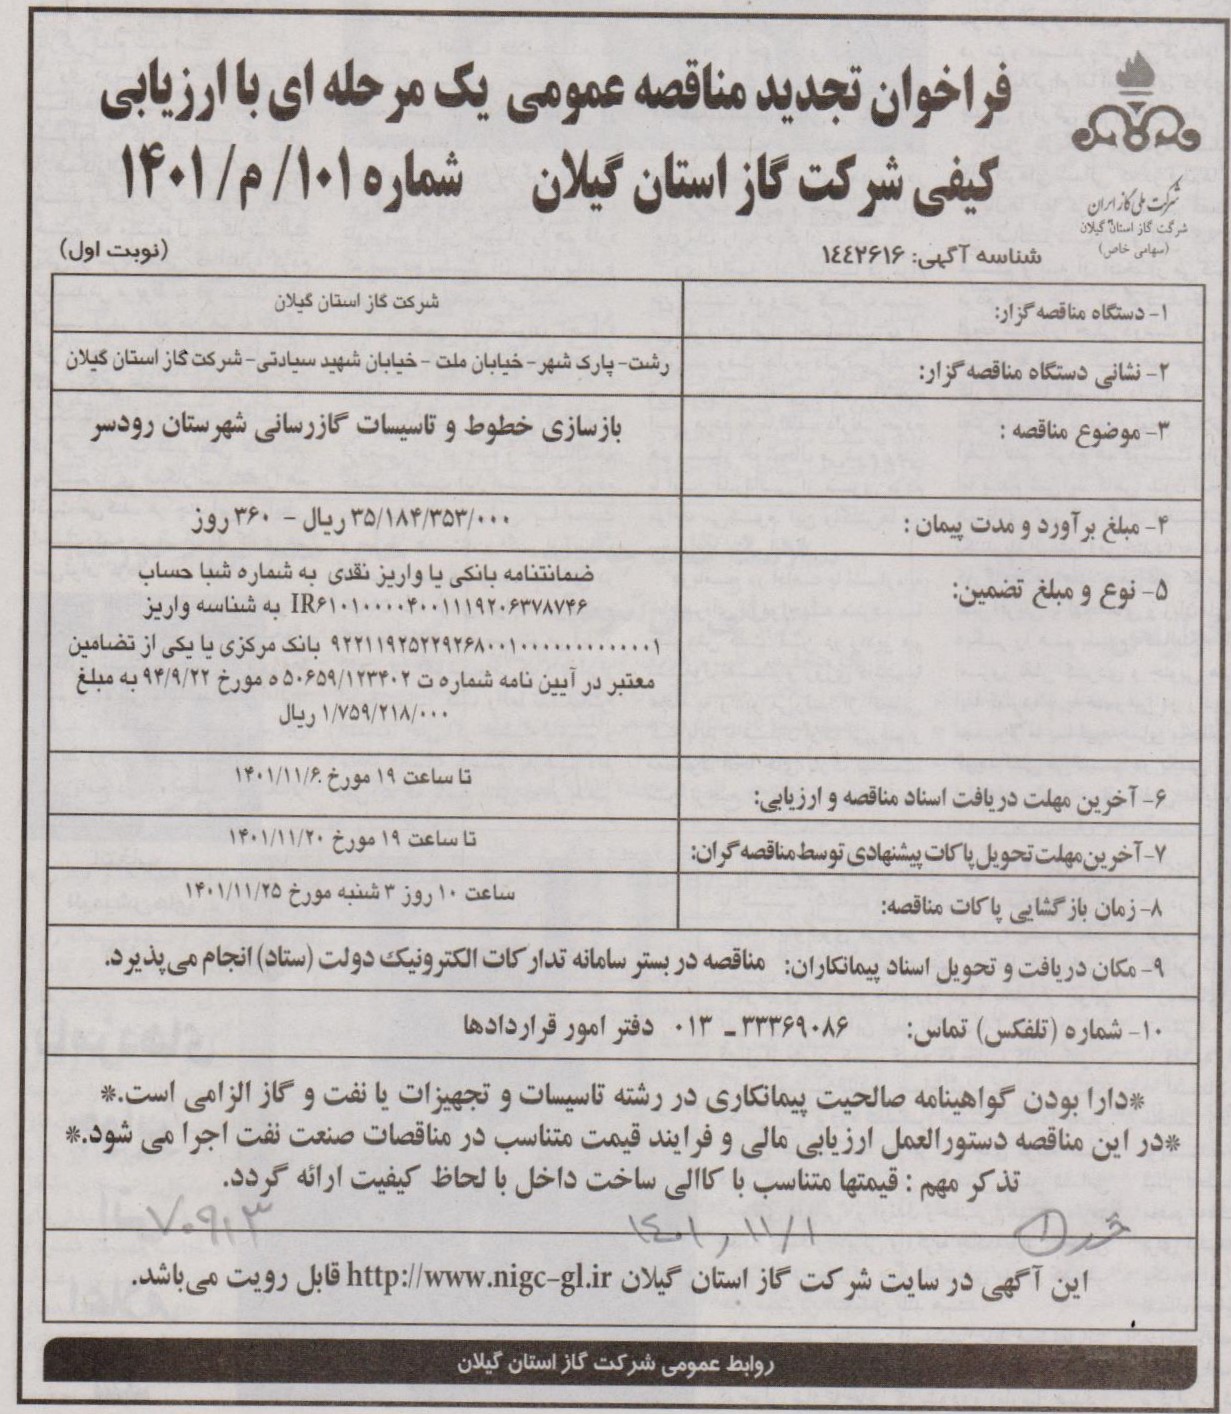 فراخوان تجدید مناقصه عمومی یک مرحله ای با ارزیابی
کیفی شرکت گاز استان گیلان شماره ۱۰۱/م/۱۴۰۱
شرکت ملی گاز ایران
شرکت گاز استان گیلان
(سهامی خاص)
شناسه آگهی: ۱۴۴۲۶۱۶
(نوبت اول)
۱- دستگاه مناقصه گزار:
شرکت گاز استان گیلان
۲- نشانی دستگاه مناقصه گزار:
رشت- پارک شهر- خیابان ملت - خیابان شهید سیادتی- شرکت گاز استان گیلان
۳- موضوع مناقصه :
بازسازی خطوط و تاسیسات گازرسانی شهرستان رودسر
۴- مبلغ برآورد و مدت پیمان :
۳۵/۱۸۴/۳۵۳/۰۰۰ ریال - ۳۶۰ روز
۵- نوع و مبلغ تضمین:
ضمانتنامه بانکی یا واریز نقدی به شماره شبا حساب
IR۶۱۰۱۰۰۰۰۴۰۰۱۱۱۹۲۰۶۳۷۸۷۴۶ به شناسه واریز
۹۲۲۱۱۹۲۵۲۲۹۲۶۸۰۰۱۰۰۰۰۰۰۰۰۰۰۰۰۱ بانک مرکزی یا یکی از تضامین
معتبر در آیین نامه شماره ت ۵۰۶۵۹/۱۲۳۴۰۲ ه مورخ ۹۴/۹/۲۲ به مبلغ
۱/۷۵۹/۲۱۸/۰۰۰ ریال
۶- آخرین مهلت دریافت اسناد مناقصه و ارزیابی:
تا ساعت ۱۹ مورخ ۱۴۰۱/۱۱/۶
۷- آخرین مهلت تحویل پاکات پیشنهادی توسط مناقصه گران:
تا ساعت ۱۹ مورخ ۱۴۰۱/۱۱/۲۰
۸- زمان بازگشایی پاکات مناقصه:
ساعت ۱۰ روز ۳ شنبه مورخ ۱۴۰۱/۱۱/۲۵
۹- مکان دریافت و تحویل اسناد پیمانکاران: مناقصه در بستر سامانه تدارکات الکترونیک دولت (ستاد) انجام می‌پذیرد.
۱۰- شماره (تلفکس) تماس: ۳۳۳۶۹۰۸۶ - ۰۱۳ دفتر امور قراردادها
*دارا بودن گواهینامه صالحیت پیمانکاری در رشته تاسیسات و تجهیزات یا نفت و گاز الزامی است.*
*در این مناقصه دستورالعمل ارزیابی مالی و فرایند قیمت متناسب در مناقصات صنعت نفت اجرا می شود.*
تذکر مهم : قیمتها متناسب با کاالی ساخت داخل با لحاظ کیفیت ارائه گردد.
۱۴۰۱/۱۱/۱
این آگهی در سایت شرکت گاز استان گیلان http://www.nigc-gl.ir قابل رویت می‌باشد.
روابط عمومی شرکت گاز استان گیلان